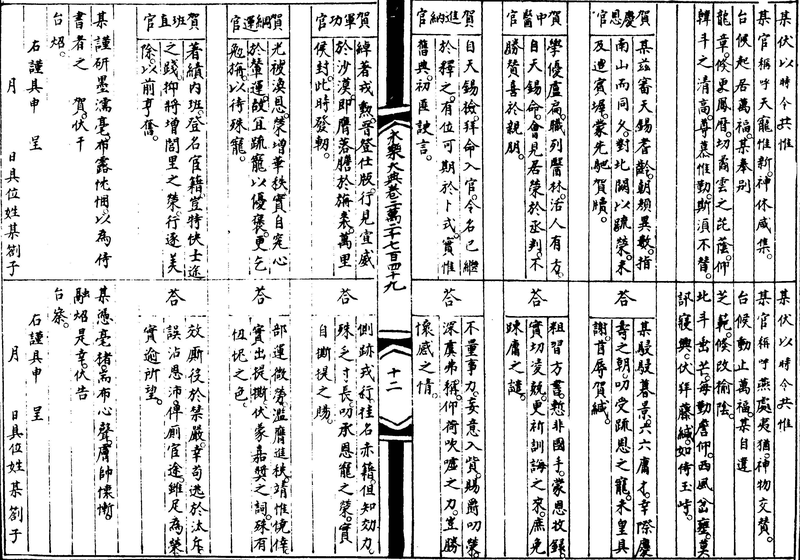 某伏以時令共惟
某官稱呼天寵惟新神休咸集
台候起居萬福某奉別
龍章條更鳳曆切喬雲之芘蔭仰
韓斗之清高尊慕惟勤斯須不替
賀慶恩官
某茲審天錫耆齡朝頒異數指
南山而同久對北闕以疏榮未
及迪賓墀蒙先馳賀牘
賀中醫官
學優盧扁職列醫林活人有方
自天錫命會見居榮於丞判不
勝贊喜於親朋
賀進納官
自天錫撿拜命入官令名已繼
於釋之有位可期於卜式實惟
舊典初匪諛言
永樂大典卷二萬二千七百四十九
賀軍功官
綽著戎勲晉登仕版行見宣威
於沙漠即膺落膽於旃裘萬里
侯封此時發軔
賀綱運官
光被渙恩榮增華秩實自完心
於輦運故且疏寵以優褒更乞
勉旃以待殊寵
賀班直官
著績内班登名官籍豈特快士途
之踐抑將增閭里之榮行遂美
除以前亨
某謹研墨濡毫布露忱悃以為侍
書者之 賀伏干
台炤
右謹具申 呈
月 日具位姓某劄子
某伏以時令共惟
某官稱呼燕處夷猶神物交贊
台候動止萬福某自違
芝範條改揄陰
北斗出芒每動詹仰西風岔甕莫
訊寢興伏拜藤緘如倚玉峙
荅
某駸駸暮景六六庸才幸際慶
壽之朝叨受疏恩之寵未皇具
謝首辱賀緘
荅
粗習方書慙非國手蒙恩收録
實切凌兢更祈訓誨之來庶免
踈庸之譴
荅
不量事力妄意入貲賜爵叨榮
深虞弗稱仰荷吹噓之力豈勝
懷感之情
十二
荅
側跡戎行挂名赤籍但知効力
殊乏寸長叨承恩寵之榮實
自撕提之賜
荅
部運微勞濫膺進秩靖惟僥倖
實出提撕伏蒙嘉奬之詞殊有
忸怩之色
荅
效厮役於禁嚴幸苟逃於汰斥
誤沾恩沛俾厠官途雖足為榮
實逾所望
某憑毫楮耑布心聲膚帥懐慚
融炤是幸伏告
台察
右謹具申 呈
月 日具位姓某劄子